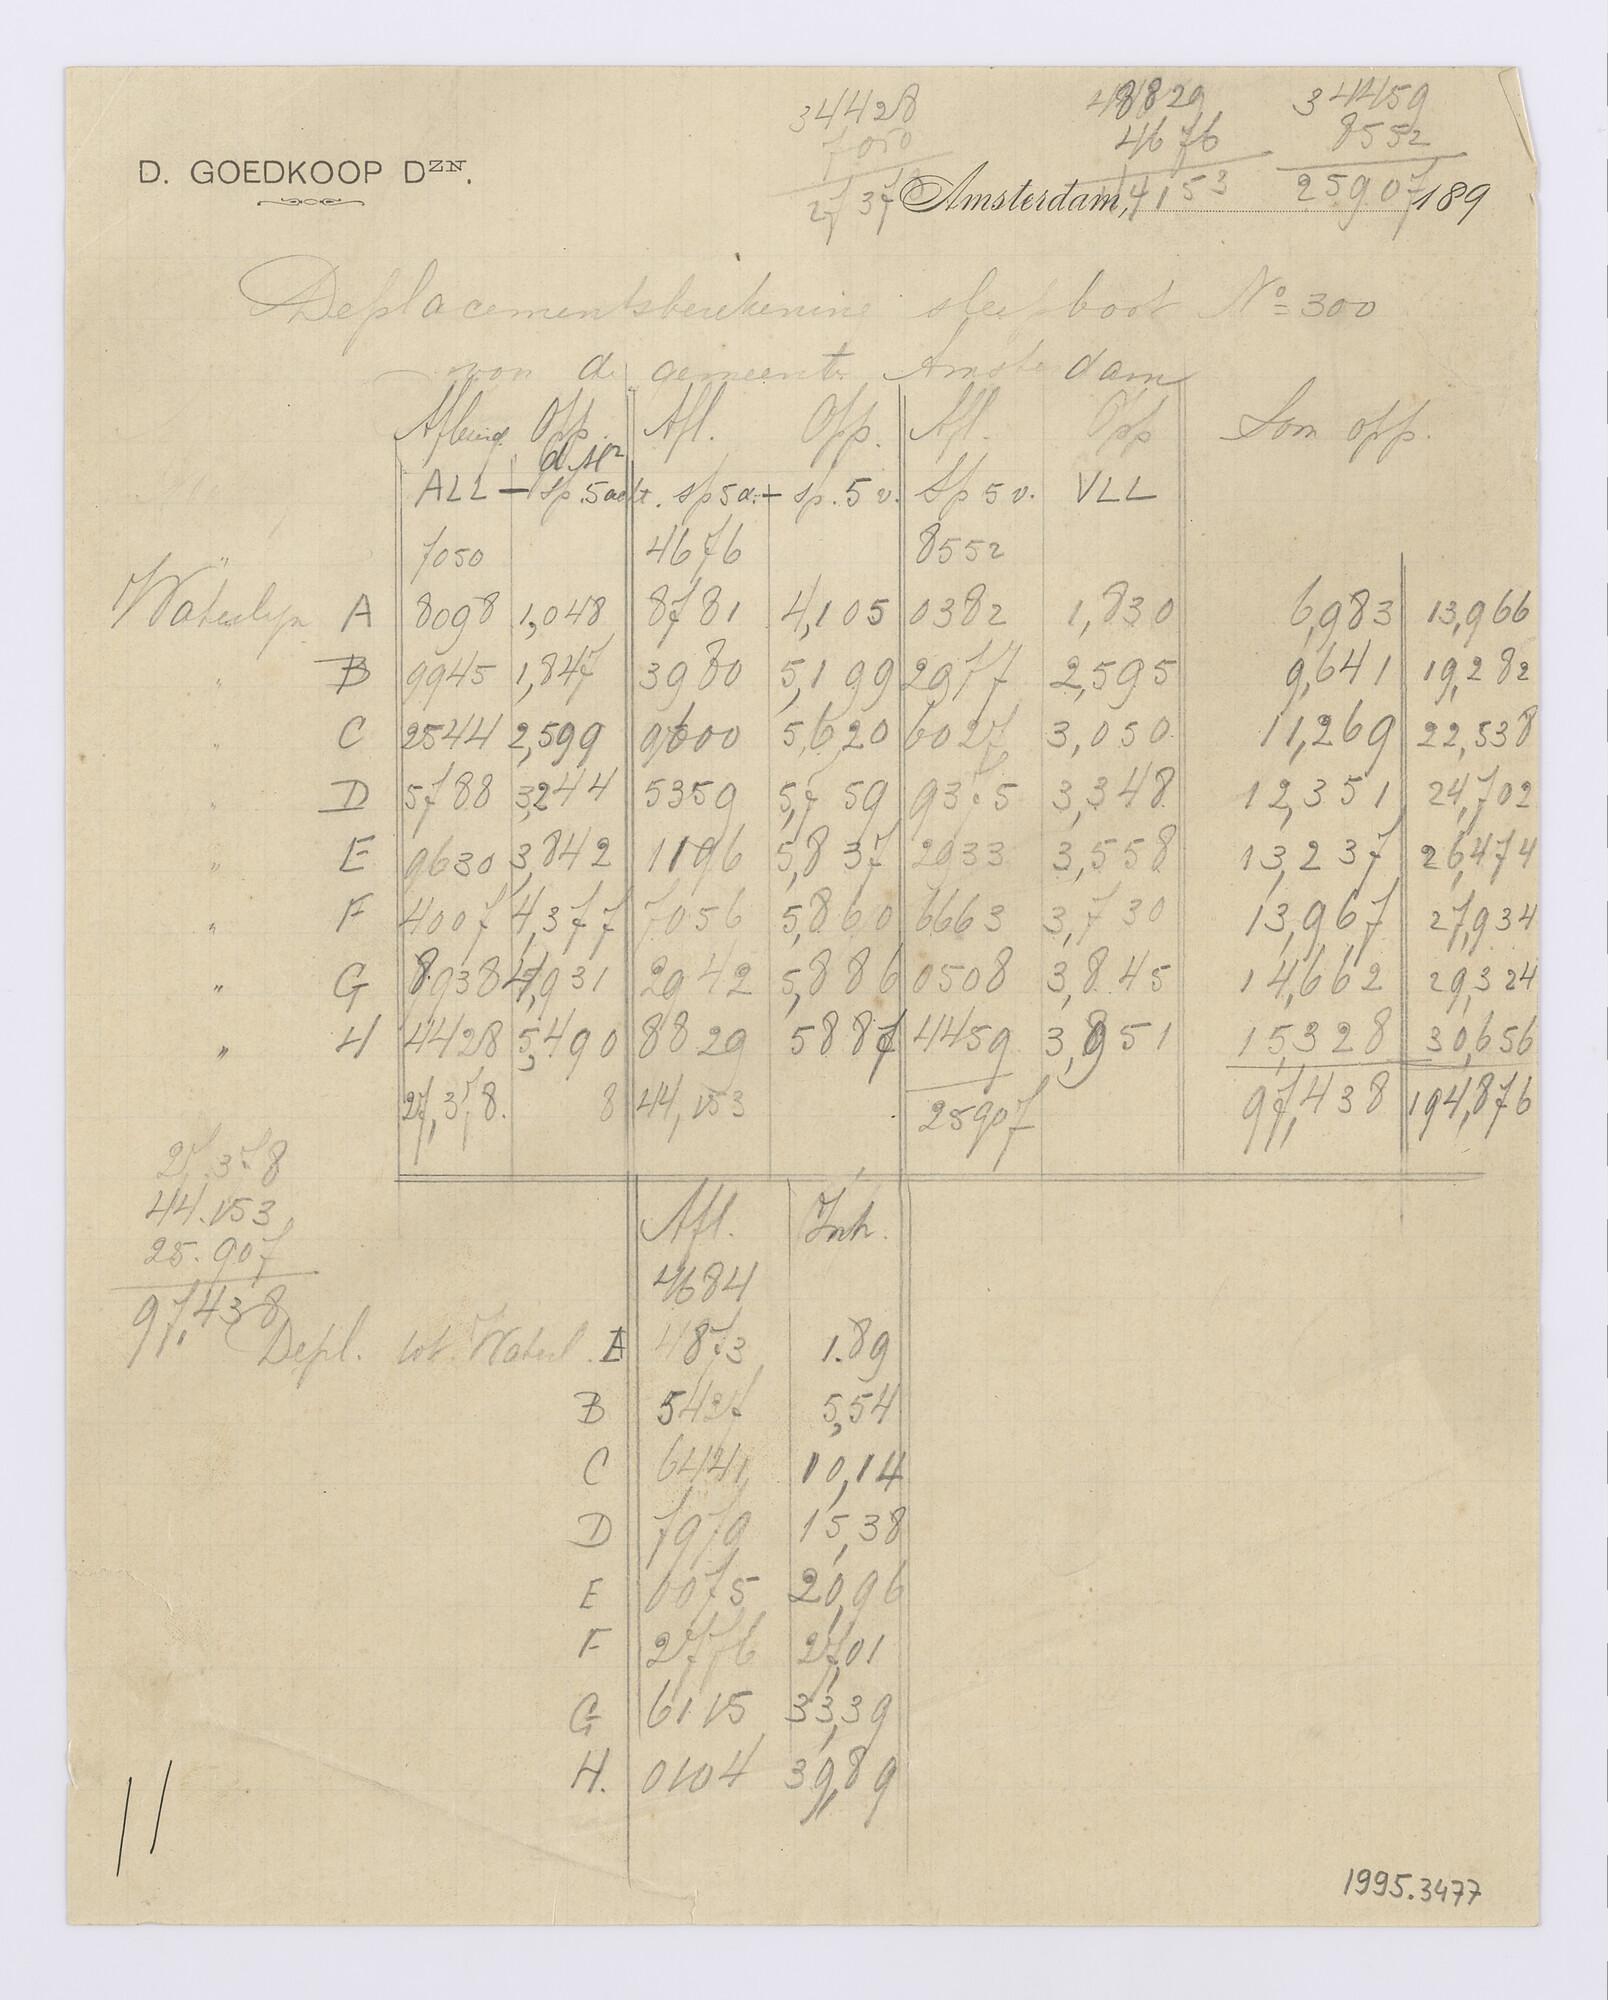 34428 48829 34459
7050 4676 8552
D. GOEDKOOP DZN.
27378 Amsterdam, 44153 25907 189
Deplacementsberekening sleepboot No 300
van de gemeente Amsterdam
Aflezing Opp. Afl. Opp. Afl. Opp Som opp.
d M²
ALL — sp. 5 acht. sp 5 a. — sp. 5 v. Sp 5 v. VLL
7050 4676 8552
Waterlijn A 8098 1,048 8781 4,105 0382 1,830 6,983 13,966
" B 9945 1,847 3980 5,199 2977 2,595 9,641 19,282
" C 2544 2,599 9600 5,620 6027 3,050 11,269 22,538
" D 5788 3,244 5359 5,759 9375 3,348 12,351 24,702
" E 9630 3,842 1196 5,837 2933 3,558 13,237 26,474
" F 4007 4,377 7056 5,860 6663 3,730 13,967 27,934
" G 8938 4,931 2942 5,886 0508 3,845 14,662 29,324
" H 4428 5,490 8829 5887 4459 3,951 15,328 30,656
27,378. 8 44,153 25907 97,438 194,876
27.378
44.153
25.907
97,438
Afl. Inh.
4684
Depl. tot Waterl. A 4873 1.89
B 5427 5,54
C 6441 10,14
D 7979 15,38
E 0075 20,96
F 2776 27,01
G 6115 33,39
H. 0104 39,89
11
1995.3477